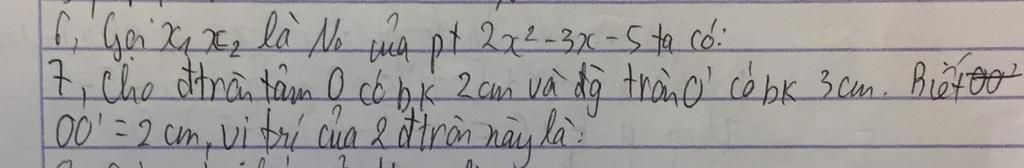 6, Gọi x₁ x₂ là No của pt 2x² - 3x - 5 ta có:
7, Cho đtròn tâm O có bk 2cm và đg tròn O' có bk 3cm. Biết
OO' = 2 cm, vị trí của 2 đtròn này là: